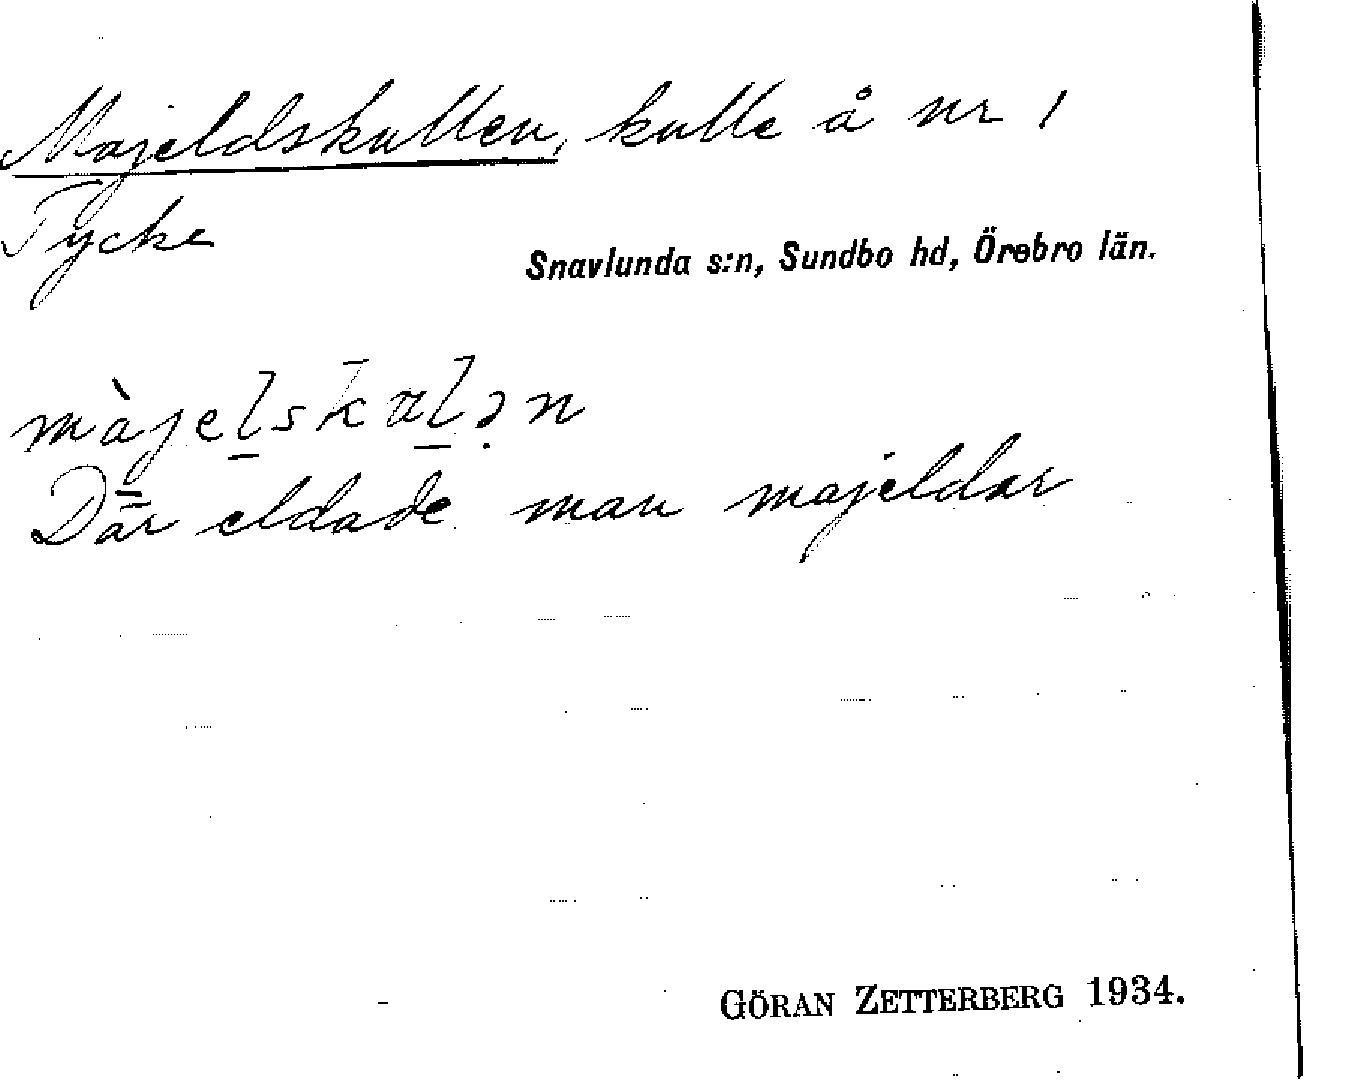 Majeldskullen, kulle å nr 1
Tycke
Snavlunda s:n, Sundbo hd, Örebro län.
Där eldade man majeldar
GÖRAN ZETTERBERG 1934.